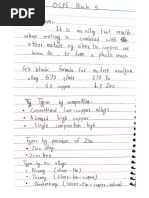 OSPE Block 5
It is an alloy that results
when mercury is combined with
other metals eg silver, tin copper and
to form a plastic mass
GV blacks formula for modern amalgam
alloy 67% silver 27% Tin
5% copper 1% Zinc
Types by composition:
Conventional low-copper alloys
Admixed high copper
Single composition high
Types by presence of Zinc
Zinc alloys
Zinc free
Types by no. alloys
Binary (silver-tin)
Ternary (silver-tin-copper)
Quaternary (silver-tin-copper-